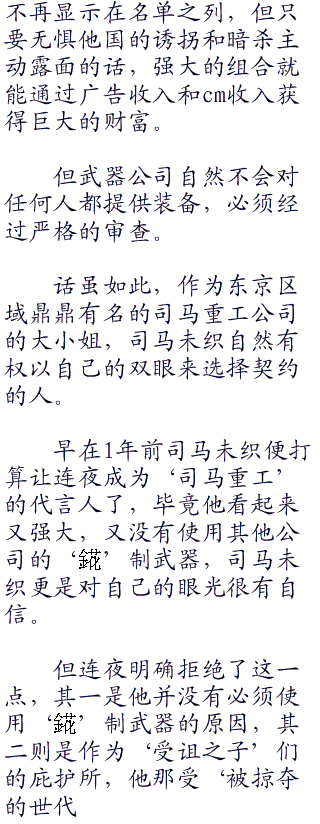 不再显示在名单之列，但只
要无惧他国的诱拐和暗杀主
动露面的话，强大的组合就
能通过广告收入和cm收入获
得巨大的财富。
但武器公司自然不会对
任何人都提供装备，必须经
过严格的审查。
话虽如此，作为东京区
域鼎鼎有名的司马重工公司
的大小姐，司马未织自然有
权以自己的双眼来选择契约
的人。
早在1年前司马未织便打
算让连夜成为‘司马重工’
的代言人了，毕竟他看起来
又强大，又没有使用其他公
司的‘錵’制武器，司马未
织更是对自己的眼光很有自
信。
但连夜明确拒绝了这一
点，其一是他并没有必须使
用‘錵’制武器的原因，其
二则是作为‘受诅之子’们
的庇护所，他那受‘被掠夺
的世代